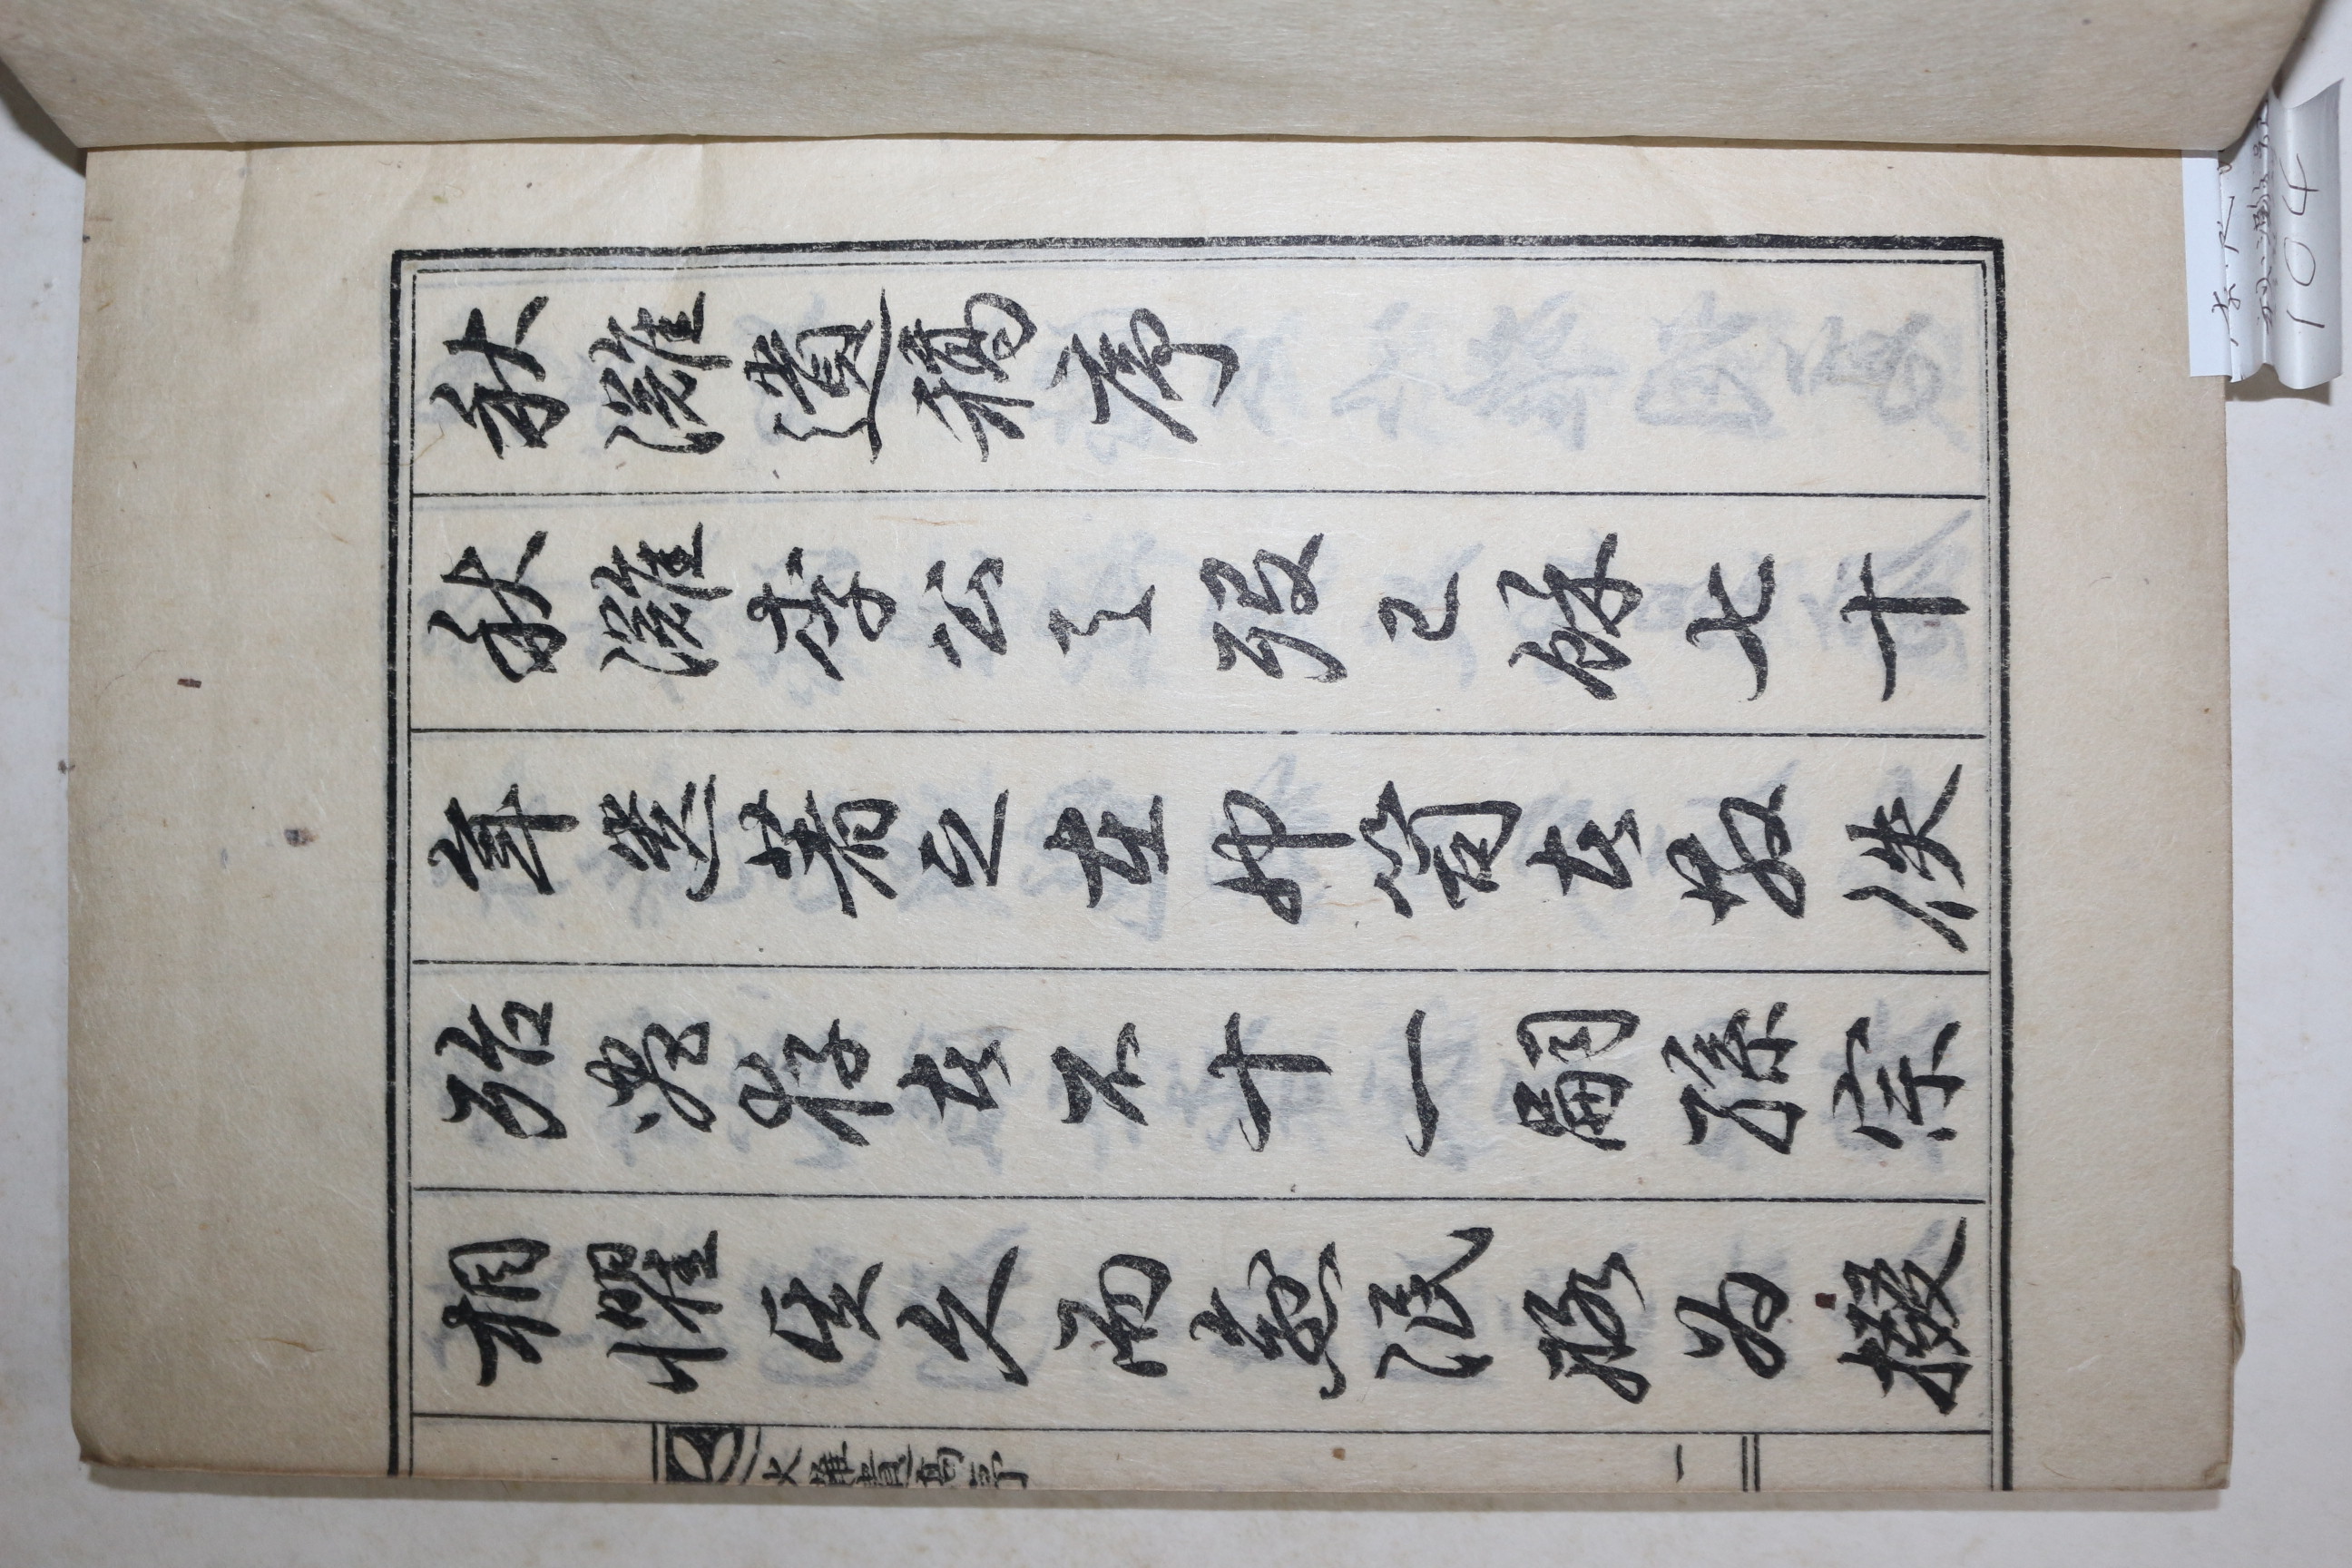 秋灘遺稿序
秋灘李公之歿已餘七十
年遺著之在巾笥者散佚
殆盡存者不十一嗣孫宗
相懼其久而愈泯略為掇
秋灘遺稿序
一
104